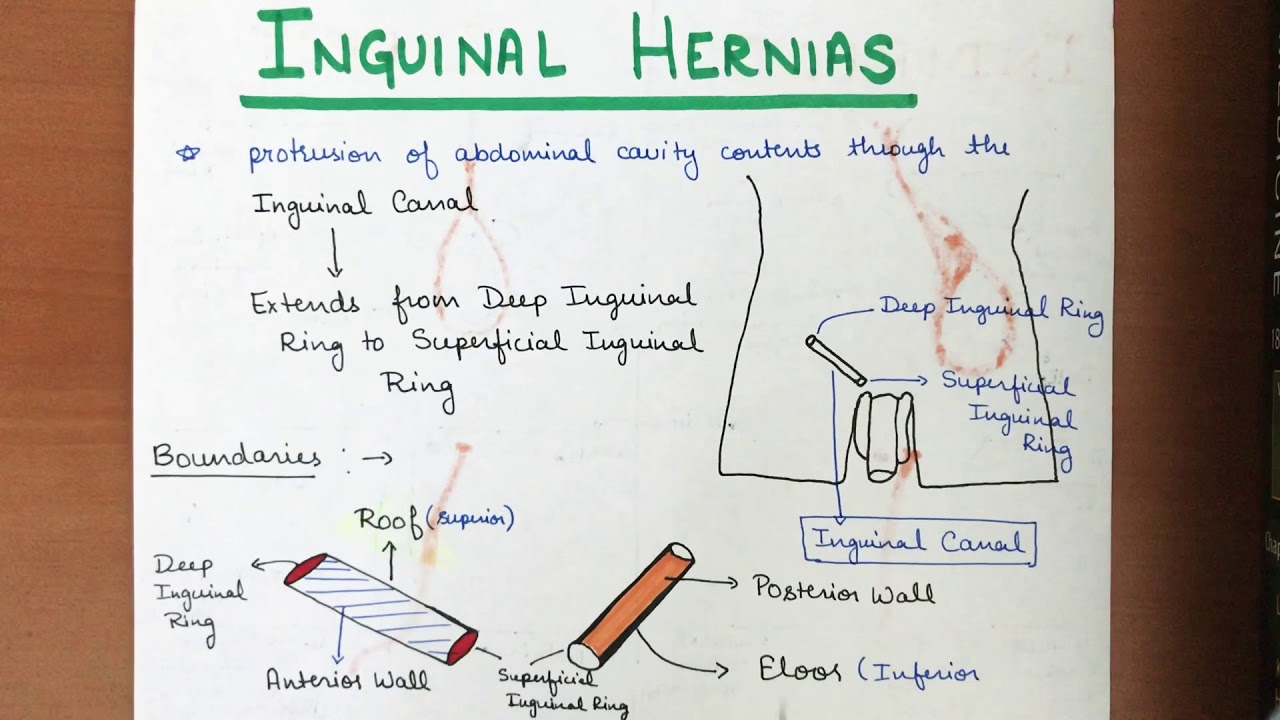 INGUINAL HERNIAS
☆ protrusion of abdominal cavity contents through the
Inguinal Canal
↓
Extends from Deep Inguinal
Ring to Superficial Inguinal
Ring
Deep Inguinal Ring
→ Superficial
Inguinal
Ring
Inguinal Canal
Boundaries : →
Roof (superior)
Deep
Inguinal
Ring
Anterior Wall
Superficial
Inguinal Ring
Posterior Wall
Floor (Inferior